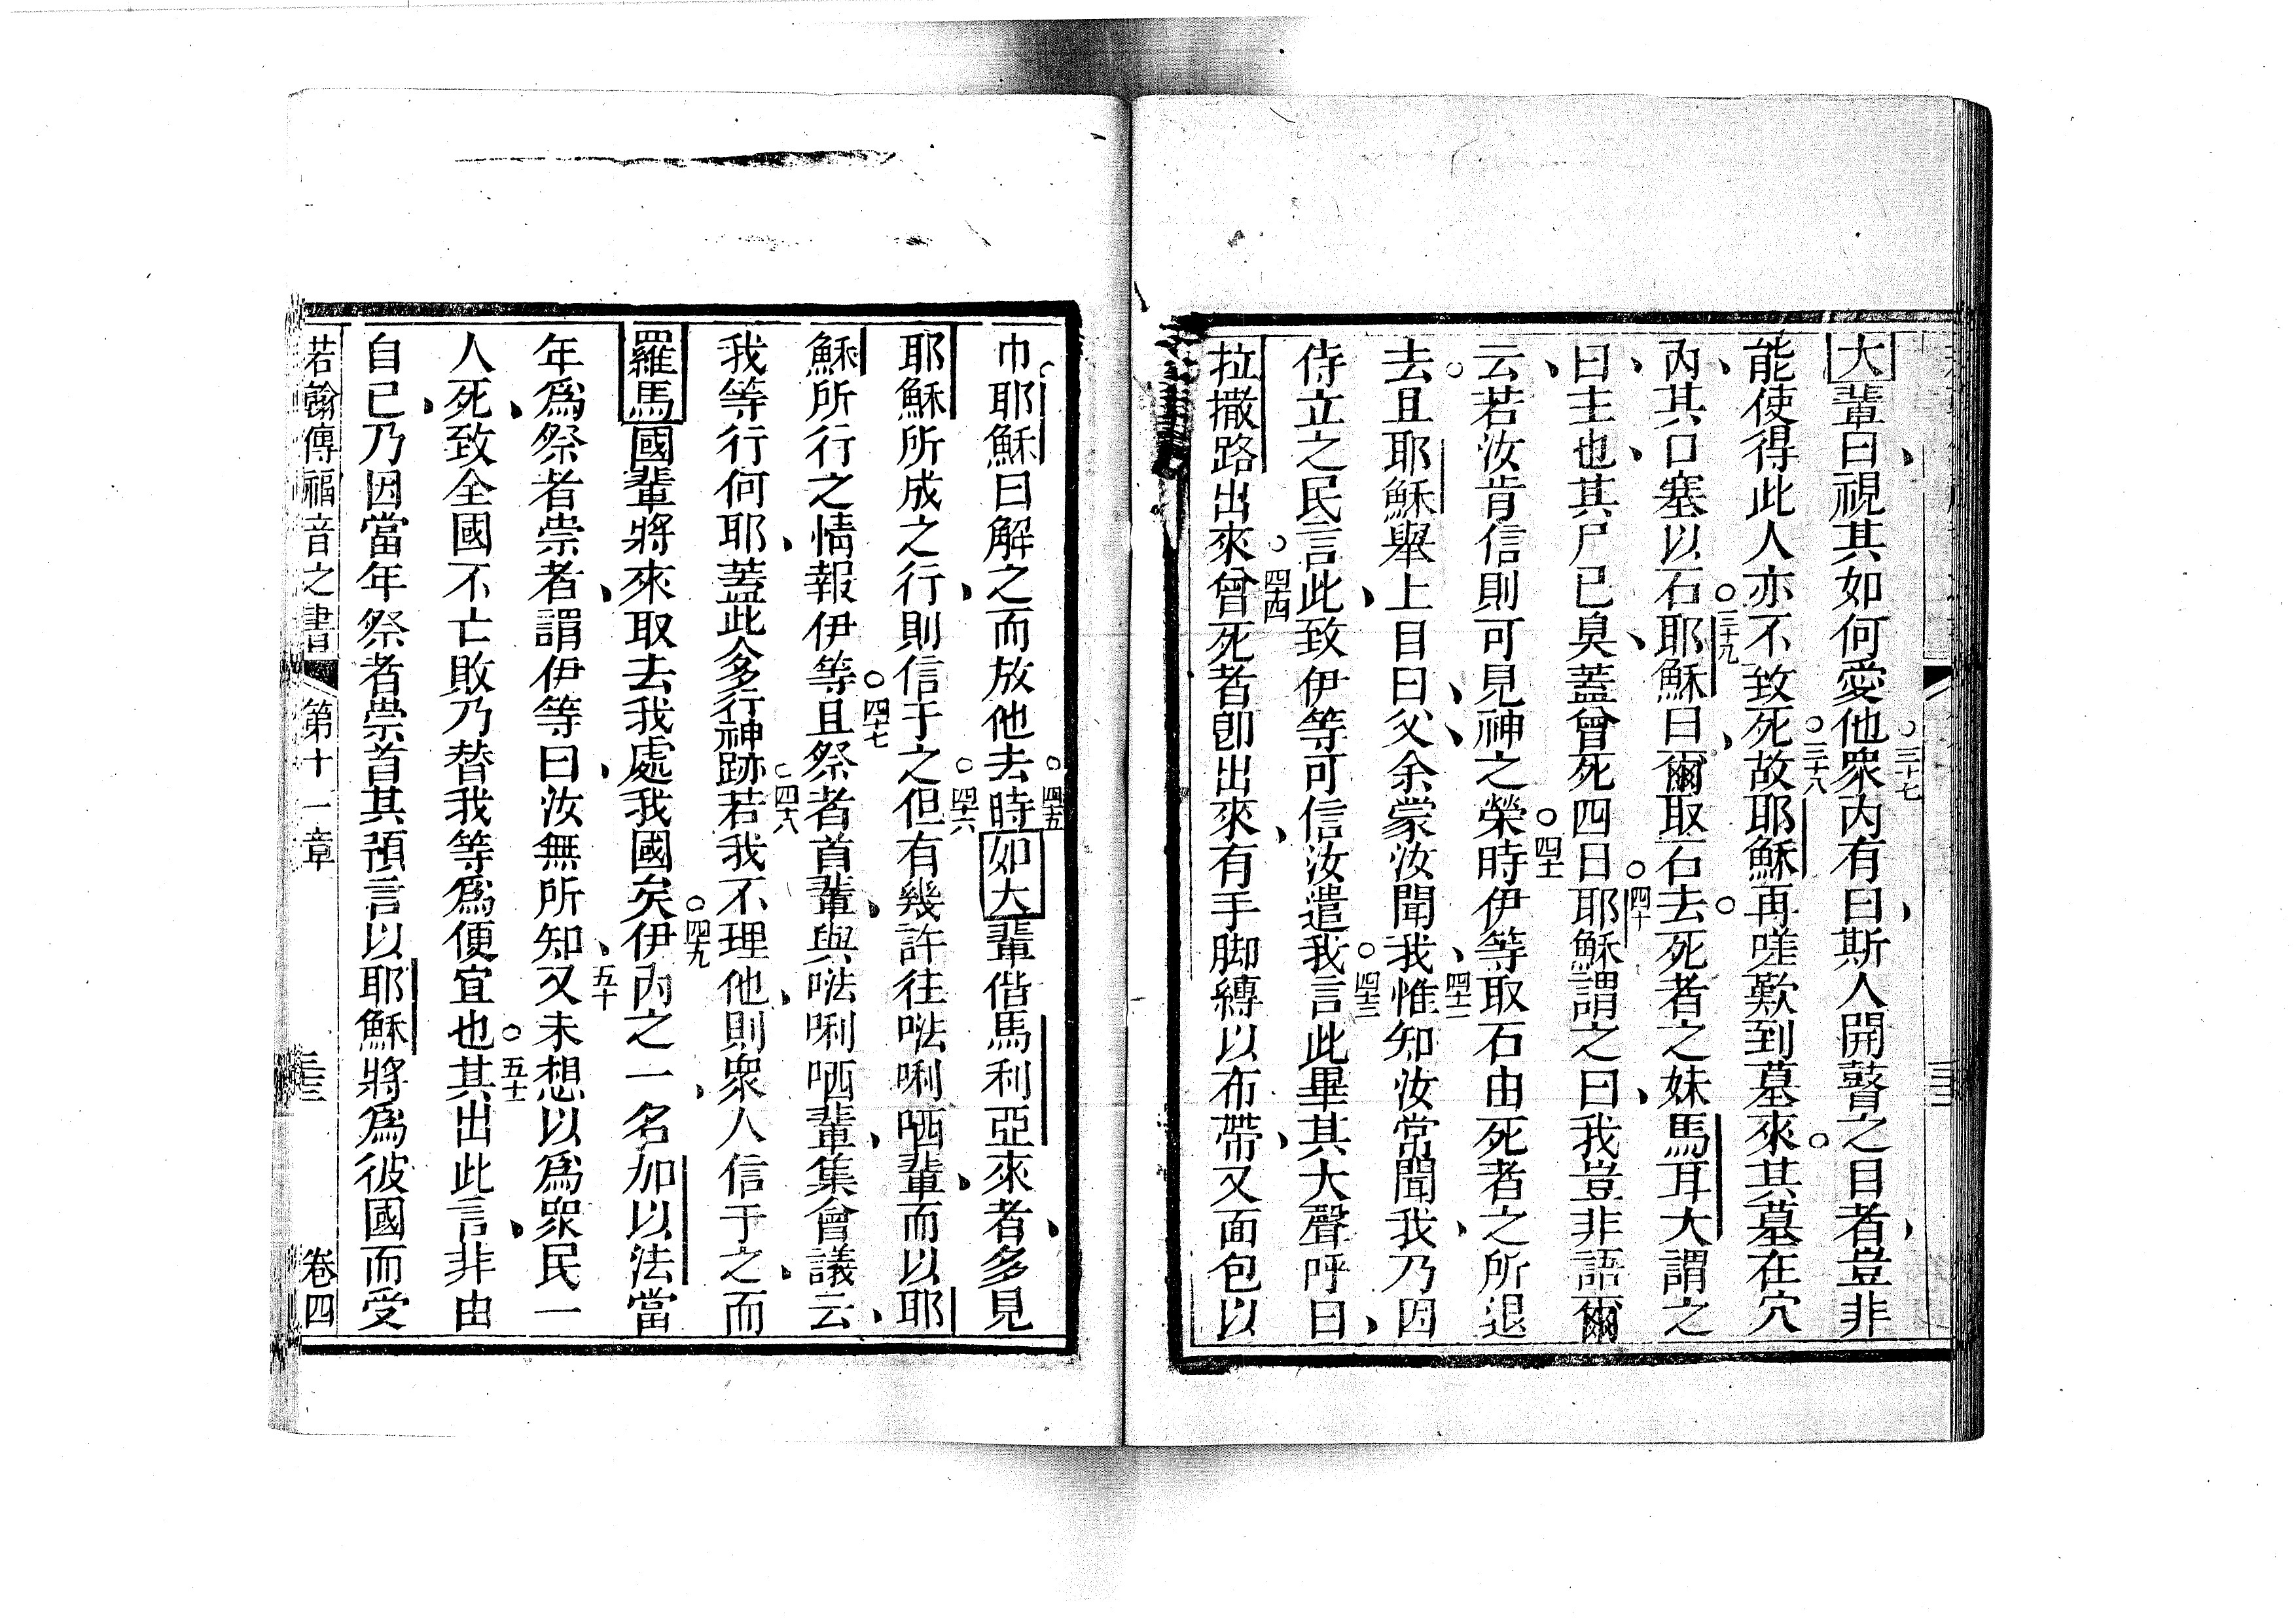 大輩曰視其如何愛他○三十七衆內有曰斯人開瞽之目者豈非
能使得此人亦不致死○三十八故耶穌再嗟歎到墓來○其墓在穴
內其口塞以石○三十九耶穌曰爾取石去○死者之妹馬耳大謂之
曰主也其尸已臭蓋曾死四日○四十耶穌謂之曰我豈非語爾
云若汝肯信則可見神之榮時○四十一伊等取石由死者之所退
去○且耶穌舉上目曰父余蒙汝聞我四十二惟知汝常聞我乃因
侍立之民言此致伊等可信汝遣我○四十三言此畢其大聲呼曰
拉撒路出來○四十四曾死者卽出來有手脚縛以布帶又面包以
巾○耶穌曰解之而放他去○四十五時如大輩偕馬利亞來者多見
耶穌所成之行則信于之○四十六但有幾許往𠵽唎哂輩而以耶
穌所行之情報伊等○四十七且祭者首輩與𠵽唎哂輩集會議云
我等行何耶蓋此人多行神跡○四十八若我不理他則衆人信于之而
羅馬國輩將來取去我處我國矣○四十九伊內之一名加以法當
年爲祭者崇者謂伊等曰汝無所知五十又未想以爲衆民一
人死致全國不亡敗乃替我等爲便宜也○五十一其出此言非由
自己乃因當年祭者崇首其預言以耶穌將爲彼國而受
若翰傳福音之書 第十一章 三十三 卷四